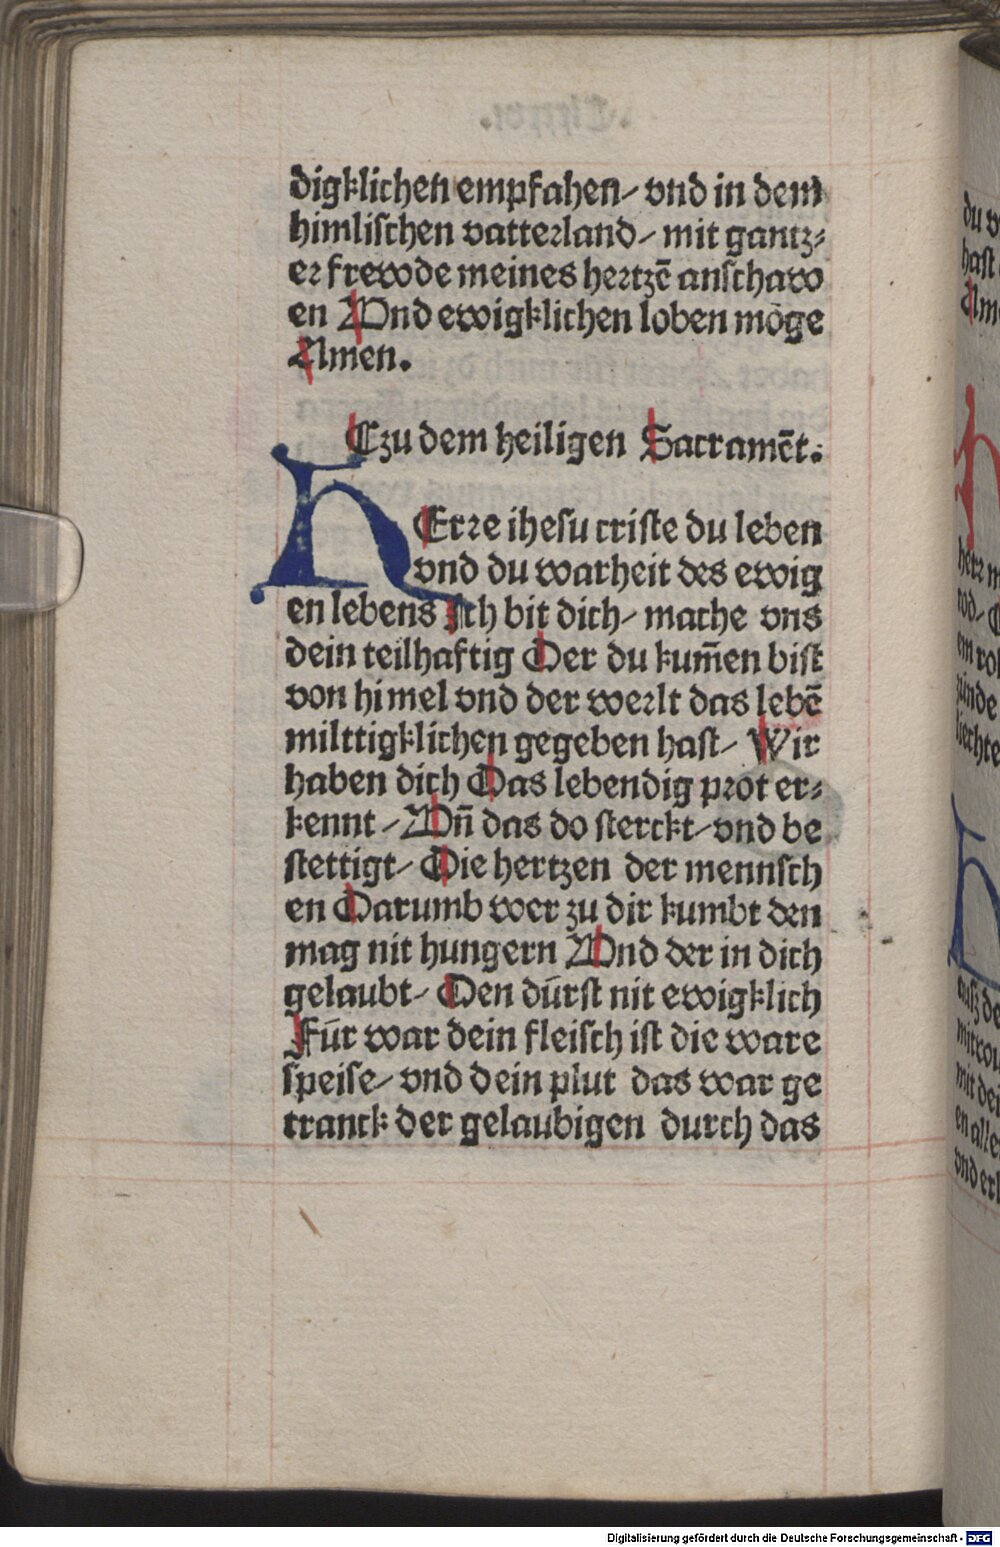 digklichen empfahen/ vnd in dem
himlischen vatterland/ mit gantz⸗
er frewde meines hertzē anschaw
en Vnd ewigklichen loben möge
Amen.
Czu dem heiligen Sacramēt.
HErre ihesu criste du leben
vnd du warheit des ewig
en lebens Ich bit dich/ mache vns
dein teilhaftig Der du kum̄en bist
von himel vnd der werlt das lebē
milttigklichen gegeben hast/ Wir
haben dich Das lebendig prot er⸗
kennt/ Vn̄ das do sterckt/ vnd be
stettigt/ Die hertzen der mennsch
en Darumb wer zu dir kumbt den
mag nit hungern Vnd der in dich
gelaubt/ Den dürst nit ewigklich
Für war dein fleisch ist die ware
speise/ vnd dein plut das war ge
tranck der gelaubigen durch das
du v
hast
Ame
herr m
tod/
em ro
zünde
liechte
H
mit de
en alle
vnd erl
Digitalisierung gefördert durch die Deutsche Forschungsgemeinschaft - DFG